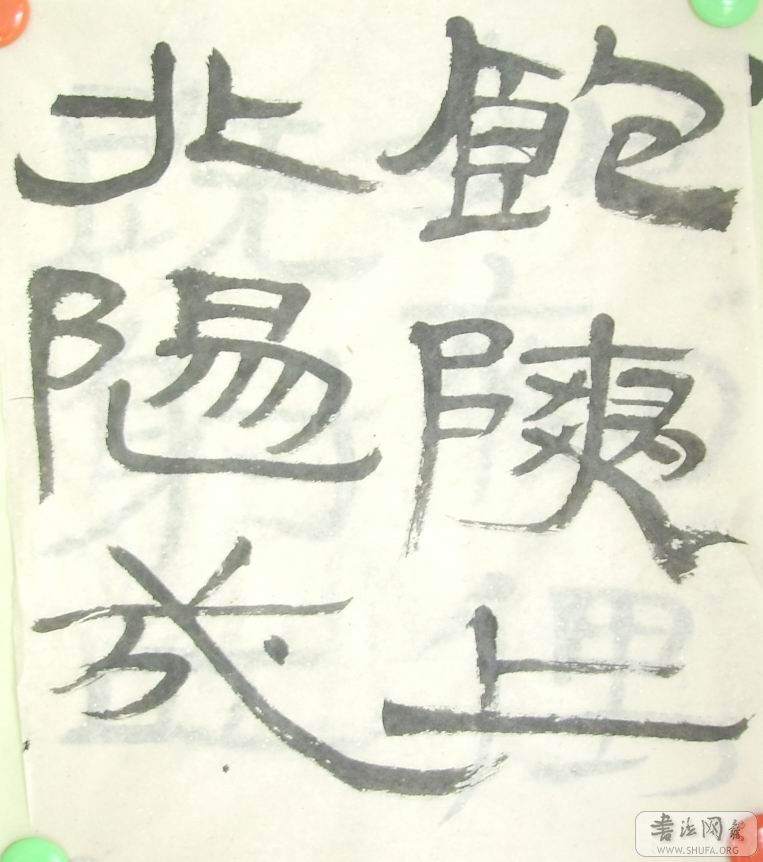 飽陝上
北陽成
書法网
WWW.SHUFA.ORG